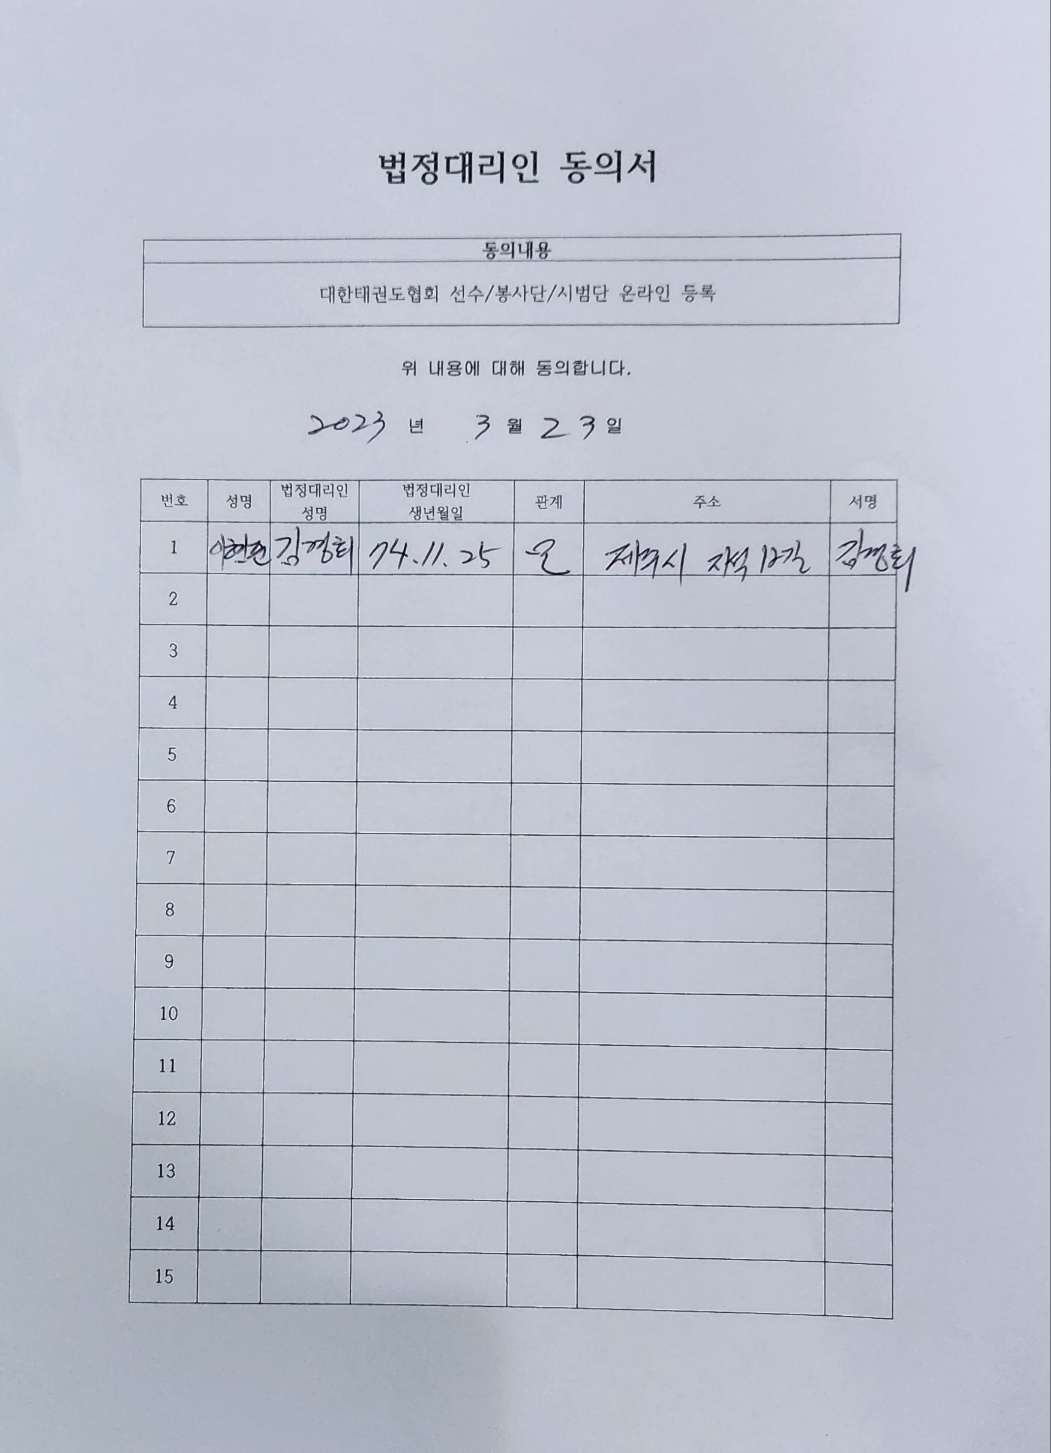 법정대리인 동의서
동의내용
대한태권도협회 선수/봉사단/시범단 온라인 등록
위 내용에 대해 동의합니다.
2023 년 3 월 23 일
번호 성명 법정대리인 성명 법정대리인 생년월일 관계 주소 서명
1 74.11.25 모 제주시 12길
2
3
4
5
6
7
8
9
10
11
12
13
14
15